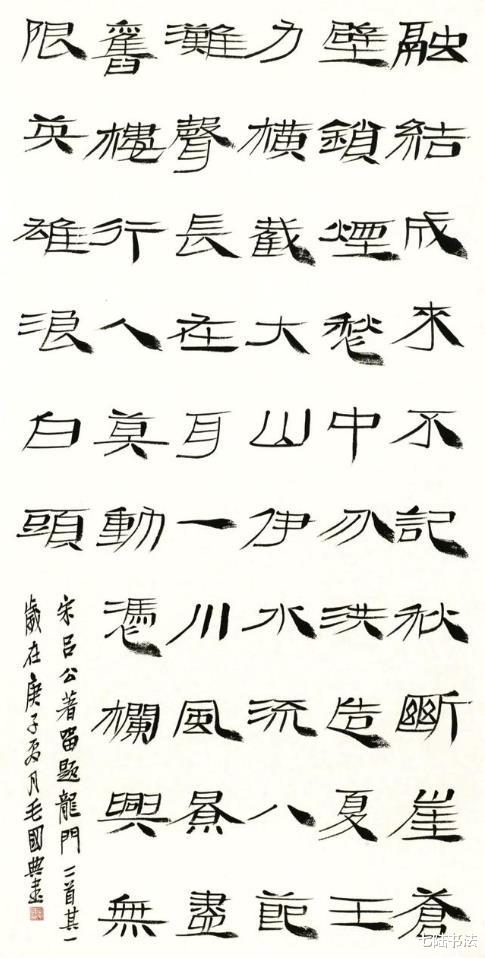 融結成來不記秋斷崖蒼
壁鎖煙愁中分洪造夏王
力橫截大山伊水流八節
灘聲長在耳一川風景盡
舊樓行人莫動憑欄興無
限英雄浪白頭
宋呂公著留題龍門二首其一
歲在庚子夏月毛國典書
七陆书法